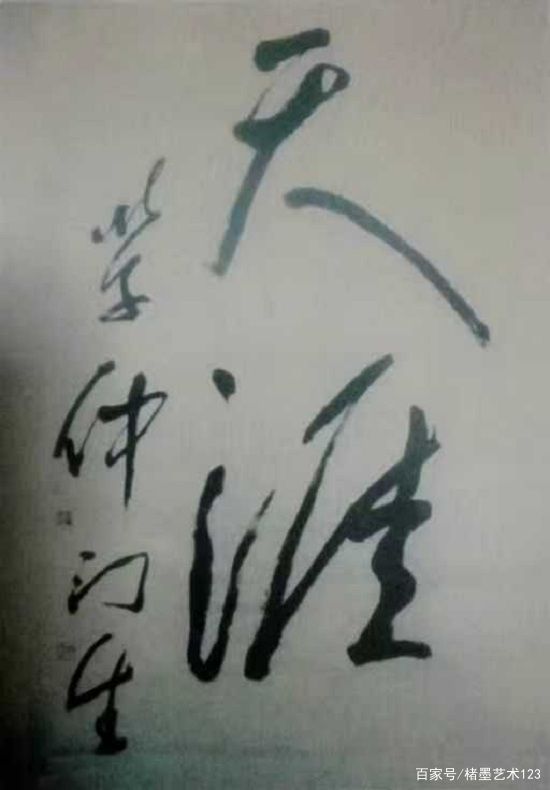 天涯
学仲门生
百家号/楮墨艺术123